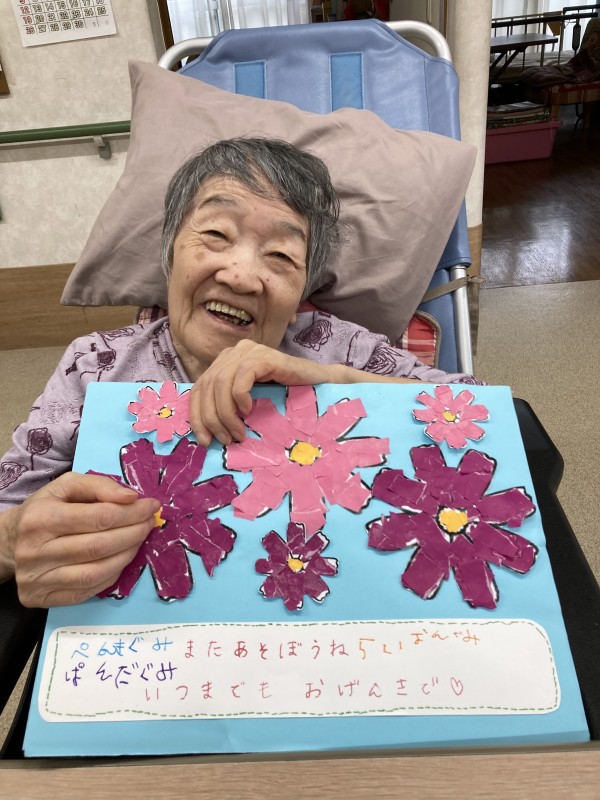 ぺんぎぐみ またあそぼうね らいおんぐみ
ぱんだぐみ
いつまでも おげんきで♡